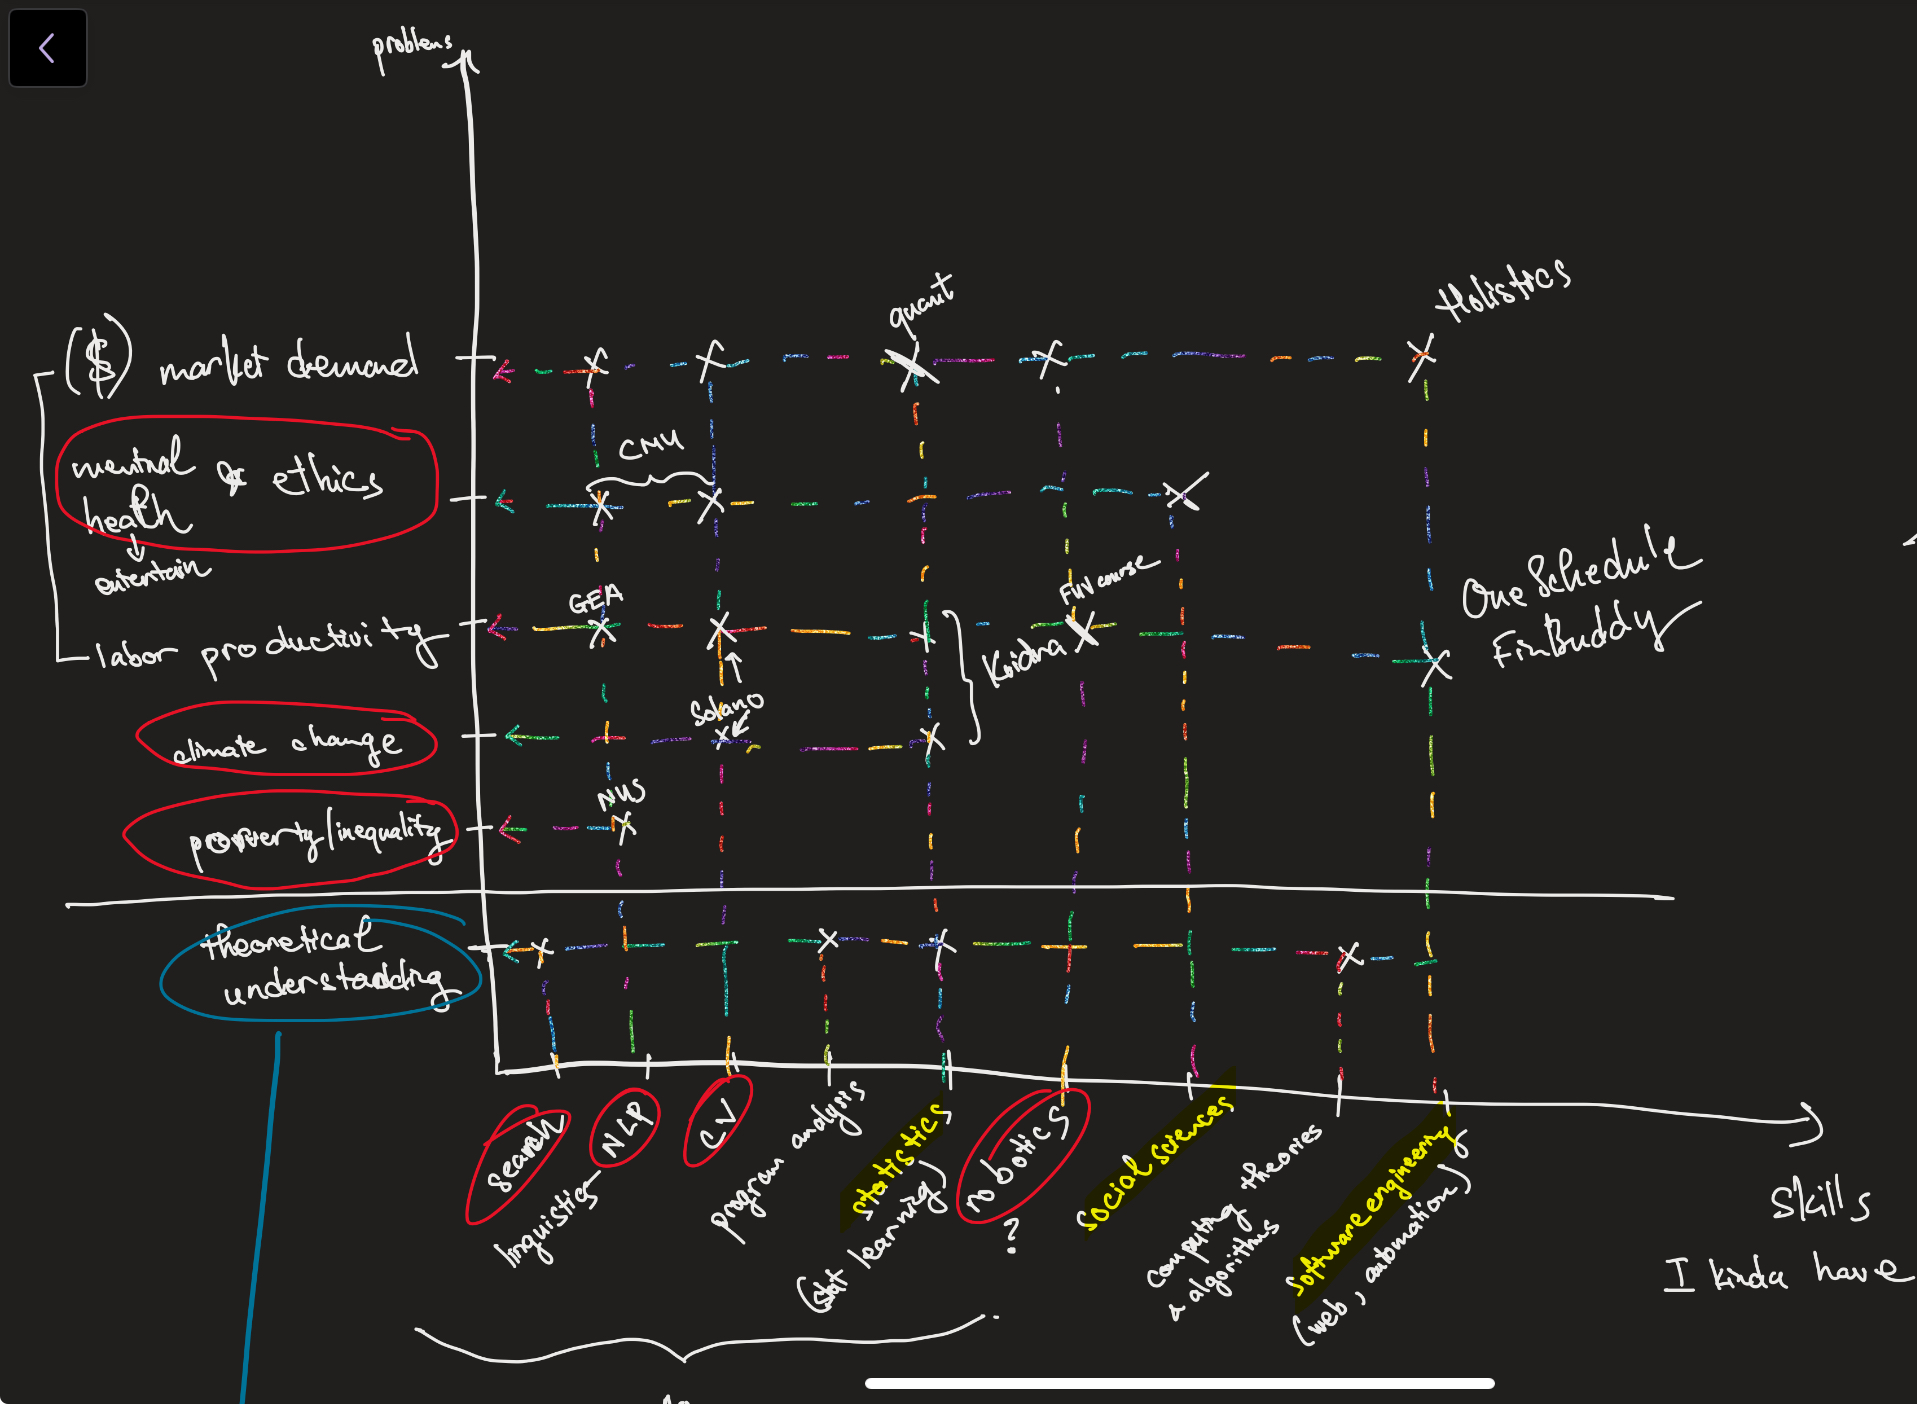 problems
quant
Holistics
($) market demand
CMU
mental & ethics
health
entertain
GEA
FUV course
One Schedule
FinBuddy
labor productivity
Koidra
Solano
climate change
NUS
poverty/inequality
theoretical
understadding
search
NLP
linguistics
CV
program analysis
statistics
(stat learning)
robotics
?
social sciences
computing theories
& algorithms
software engineering
(web, automation)
skills
I kinda have